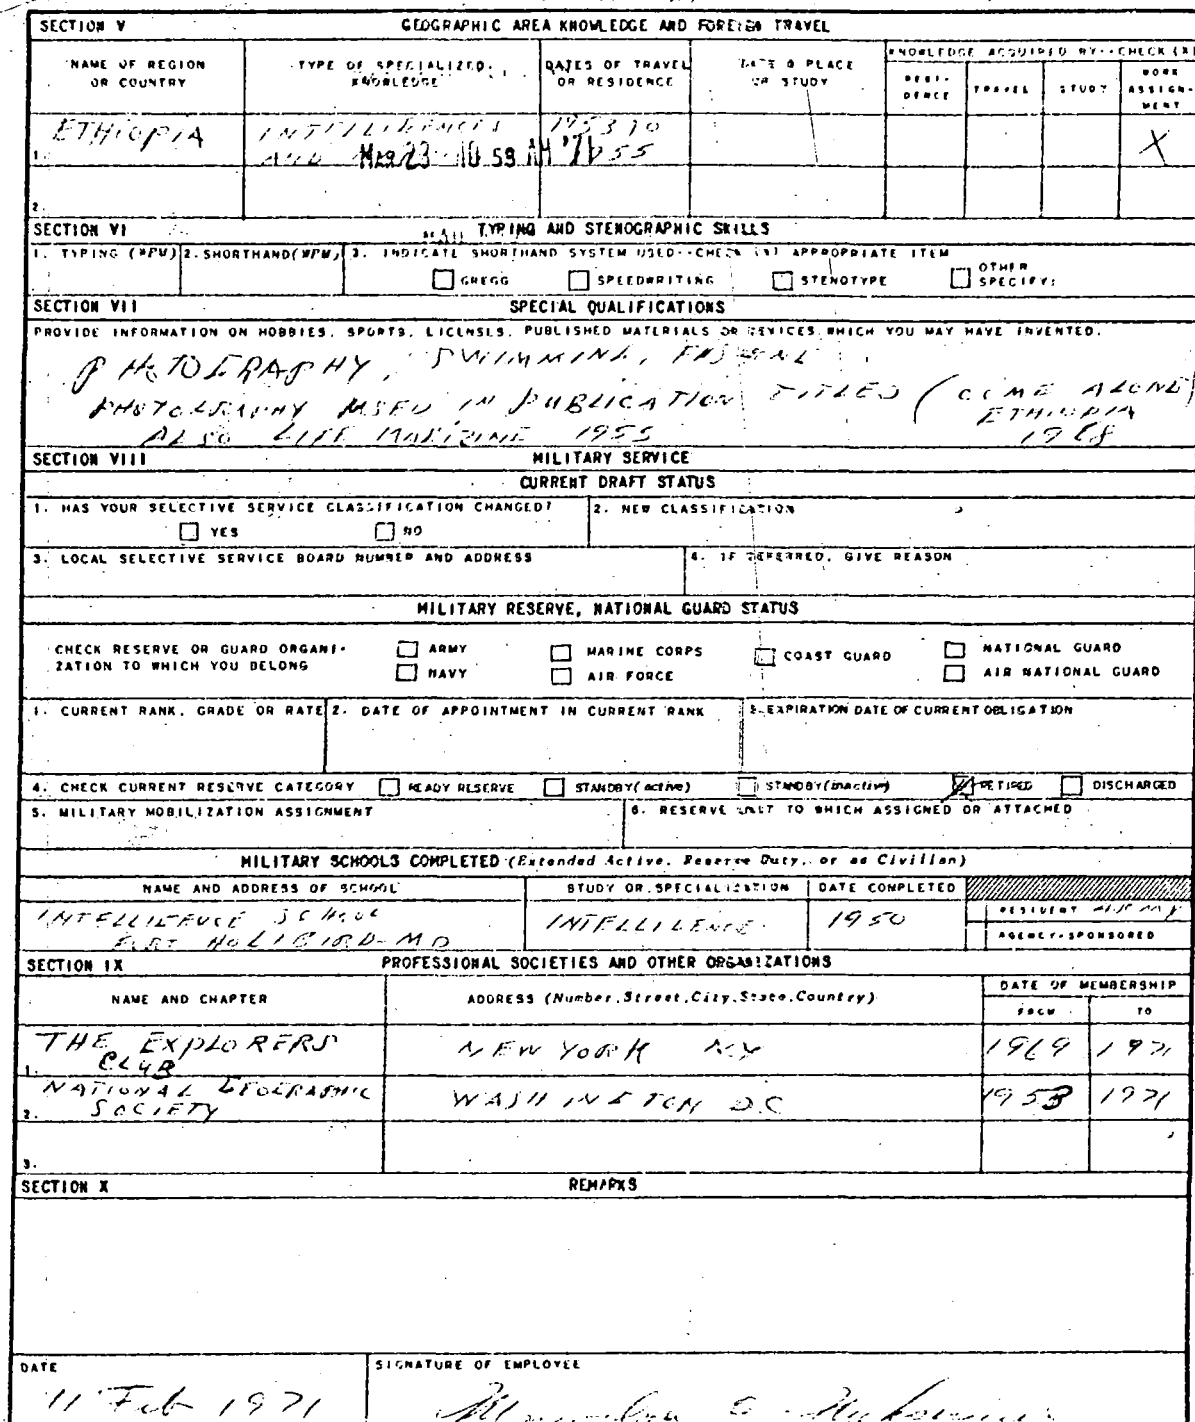 SECTION V GEOGRAPHIC AREA KNOWLEDGE AND FOREIGN TRAVEL
NAME OF REGION OR COUNTRY
TYPE OF SPECIALIZED KNOWLEDGE
DATES OF TRAVEL OR RESIDENCE
DATE & PLACE OF STUDY
KNOWLEDGE ACQUIRED BY--CHECK (X)
RESIDENCE TRAVEL STUDY WORK ASSIGNMENT
1. ETHIOPIA INTELLIGENCE 1953 TO X
AND MAR 23 10 59 AM '71 1955
2.
SECTION VI TYPING AND STENOGRAPHIC SKILLS
1. TYPING (WPM) 2. SHORTHAND(WPM) 3. INDICATE SHORTHAND SYSTEM USED--CHECK (X) APPROPRIATE ITEM
GREGG SPEEDWRITING STENOTYPE OTHER SPECIFY:
SECTION VII SPECIAL QUALIFICATIONS
PROVIDE INFORMATION ON HOBBIES, SPORTS, LICENSES, PUBLISHED MATERIALS OR DEVICES WHICH YOU MAY HAVE INVENTED.
PHOTOGRAPHY, SWIMMING,
PHOTOGRAPHY USED IN PUBLICATION TITLED (COME ALONG)
ETHIOPIA
ALSO LIFE MAGIZINE 1955 1968
SECTION VIII MILITARY SERVICE
CURRENT DRAFT STATUS
1. HAS YOUR SELECTIVE SERVICE CLASSIFICATION CHANGED? 2. NEW CLASSIFICATION
YES NO
3. LOCAL SELECTIVE SERVICE BOARD NUMBER AND ADDRESS 4. IF DEFERRED, GIVE REASON
MILITARY RESERVE, NATIONAL GUARD STATUS
CHECK RESERVE OR GUARD ORGANI- ARMY MARINE CORPS COAST GUARD NATIONAL GUARD
ZATION TO WHICH YOU BELONG NAVY AIR FORCE AIR NATIONAL GUARD
1. CURRENT RANK, GRADE OR RATE 2. DATE OF APPOINTMENT IN CURRENT RANK 3. EXPIRATION DATE OF CURRENT OBLIGATION
4. CHECK CURRENT RESERVE CATEGORY READY RESERVE STANDBY(active) STANDBY(inactive) RETIRED DISCHARGED
5. MILITARY MOBILIZATION ASSIGNMENT 6. RESERVE UNIT TO WHICH ASSIGNED OR ATTACHED
MILITARY SCHOOLS COMPLETED (Extended Active, Reserve Duty, or as Civilian)
NAME AND ADDRESS OF SCHOOL STUDY OR SPECIALIZATION DATE COMPLETED
INTELLIGENCE SCHOOL INTELLIGENCE 1950 RESIDENT
FORT HOLIBIRD-MD AGENCY-SPONSORED
SECTION IX PROFESSIONAL SOCIETIES AND OTHER ORGANIZATIONS
NAME AND CHAPTER ADDRESS (Number,Street,City,State,Country) DATE OF MEMBERSHIP
FROM TO
THE EXPLORERS NEW YORK NY 1969 1971
1. CLUB
NATIONAL GEOGRAPHIC WASHINGTON DC 1953 1971
2. SOCIETY
3.
SECTION X REMARKS
DATE SIGNATURE OF EMPLOYEE
11 Feb 1971